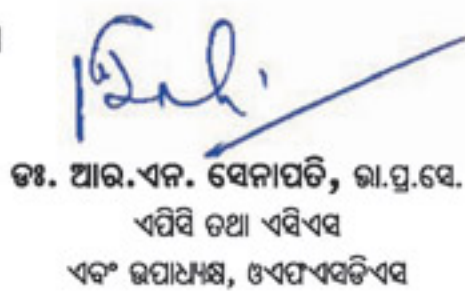 ଡଃ. ଆର.ଏନ. ସେନାପତି, ଭା.ପ୍ର.ସେ.
ଏପିସି ତଥା ଏସିଏସ
ଏବଂ ଉପାଧ୍ୟକ୍ଷ, ଓଏଫଏସଡିଏସ